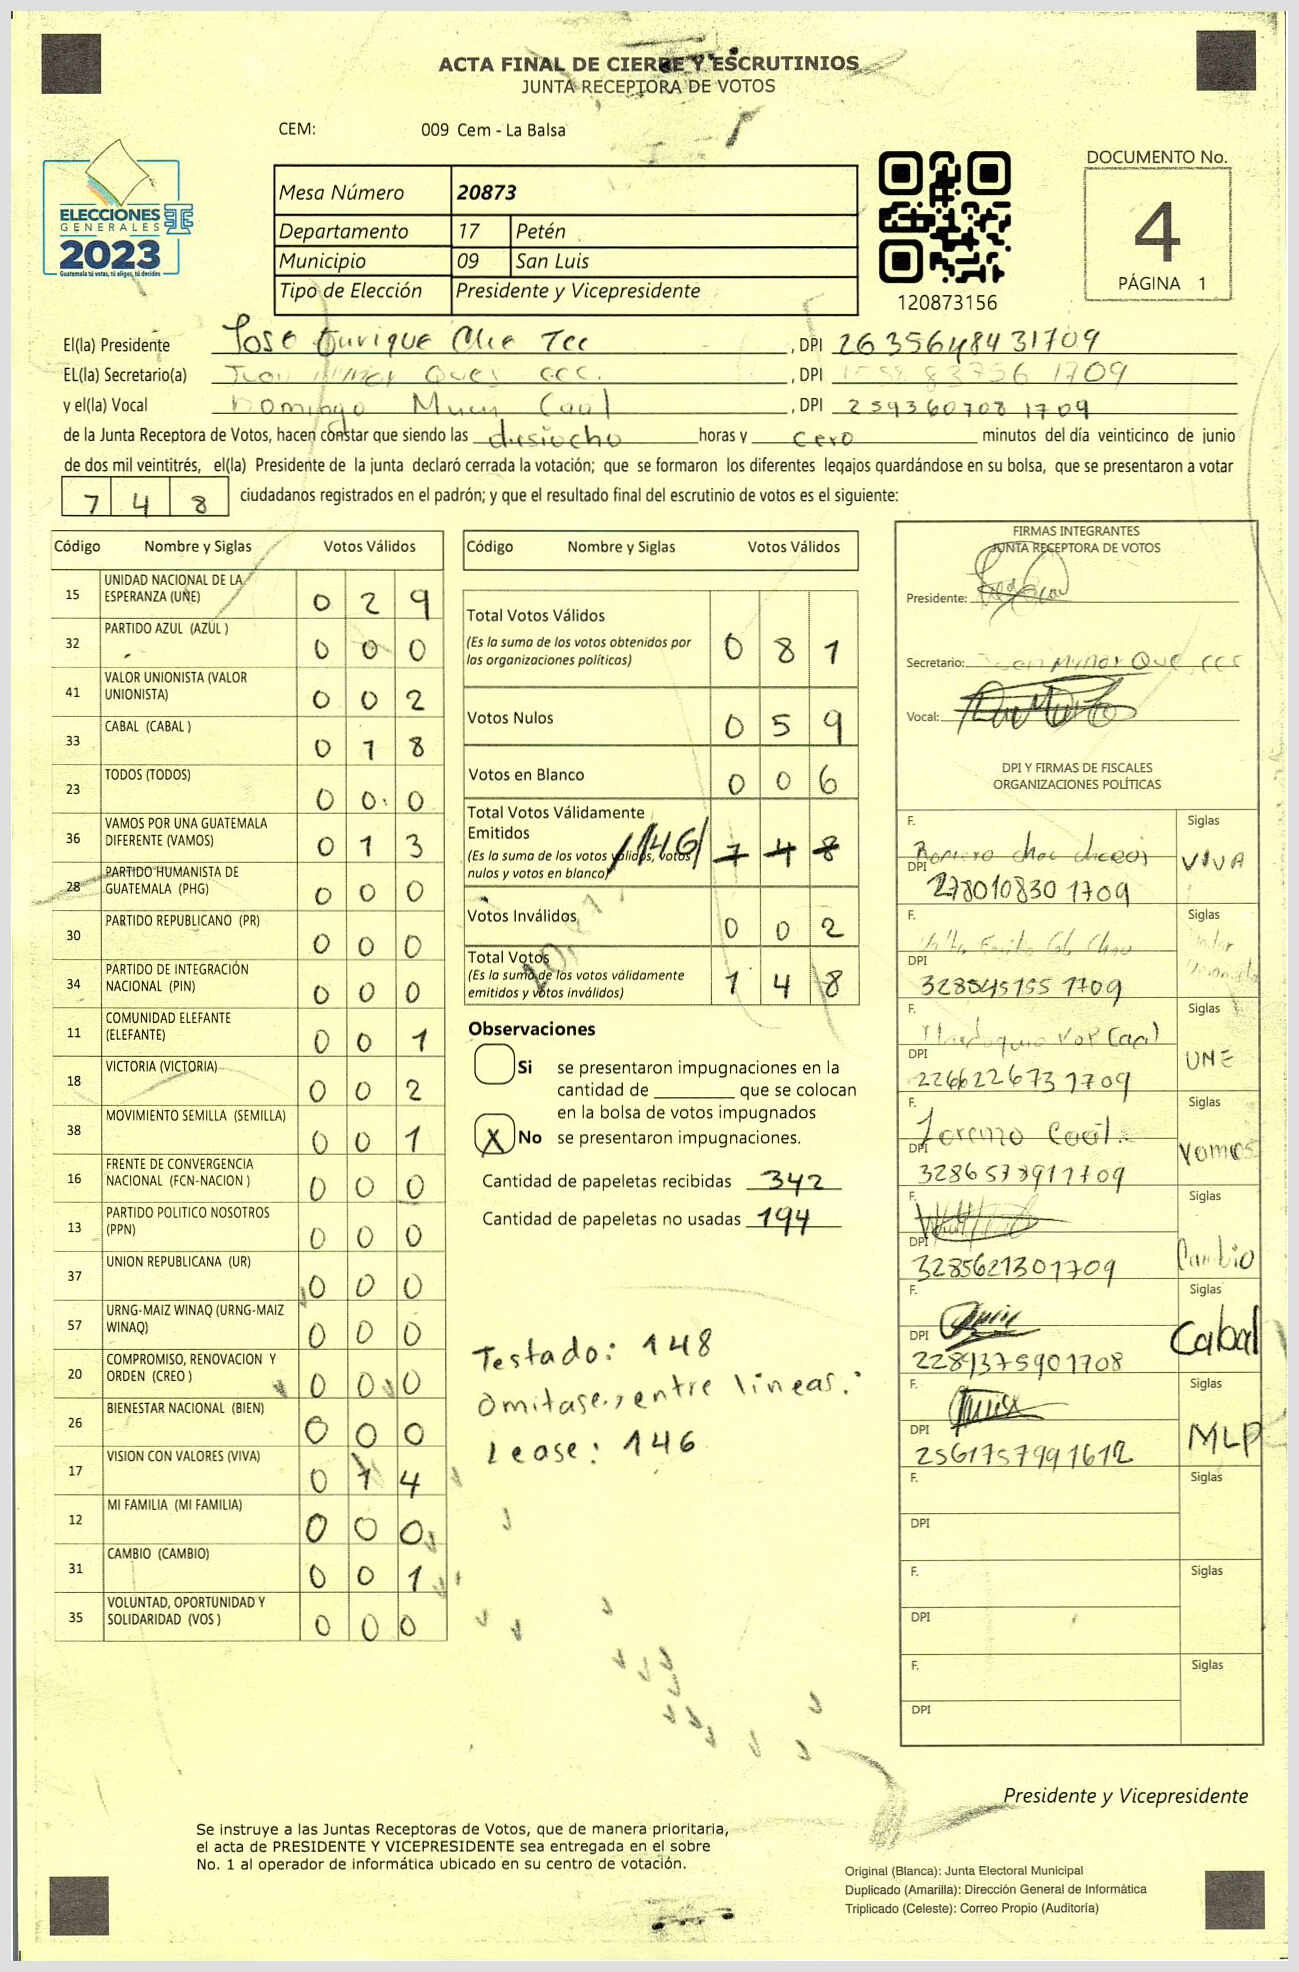 ACTA FINAL DE CIERRE Y ESCRUTINIOS
JUNTA RECEPTORA DE VOTOS
CEM: 009 Cem - La Balsa
ELECCIONES
GENERALES
2023
Guatemala tú votas, tú eliges, tú decides
Mesa Número 20873
Departamento 17 Petén
Municipio 09 San Luis
Tipo de Elección Presidente y Vicepresidente
120873156
DOCUMENTO No.
4
PÁGINA 1
El(la) Presidente Jose Enrique Che Tec , DPI 2635648431709
EL(la) Secretario(a) Juan , DPI
y el(la) Vocal Domingo Caal , DPI 2593607081709
de la Junta Receptora de Votos, hacen constar que siendo las desiocho horas y cero minutos del día veinticinco de junio
de dos mil veintitrés, el(la) Presidente de la junta declaró cerrada la votación; que se formaron los diferentes legajos guardándose en su bolsa, que se presentaron a votar
748 ciudadanos registrados en el padrón; y que el resultado final del escrutinio de votos es el siguiente:
Código Nombre y Siglas Votos Válidos
15 UNIDAD NACIONAL DE LA ESPERANZA (UNE) 0 2 9
32 PARTIDO AZUL (AZUL ) 0 0 0
41 VALOR UNIONISTA (VALOR UNIONISTA) 0 0 2
33 CABAL (CABAL ) 0 1 8
23 TODOS (TODOS) 0 0 0
36 VAMOS POR UNA GUATEMALA DIFERENTE (VAMOS) 0 1 3
28 PARTIDO HUMANISTA DE GUATEMALA (PHG) 0 0 0
30 PARTIDO REPUBLICANO (PR) 0 0 0
34 PARTIDO DE INTEGRACIÓN NACIONAL (PIN) 0 0 0
11 COMUNIDAD ELEFANTE (ELEFANTE) 0 0 1
18 VICTORIA (VICTORIA) 0 0 2
38 MOVIMIENTO SEMILLA (SEMILLA) 0 0 1
16 FRENTE DE CONVERGENCIA NACIONAL (FCN-NACION ) 0 0 0
13 PARTIDO POLITICO NOSOTROS (PPN) 0 0 0
37 UNION REPUBLICANA (UR) 0 0 0
57 URNG-MAIZ WINAQ (URNG-MAIZ WINAQ) 0 0 0
20 COMPROMISO, RENOVACION Y ORDEN (CREO ) 0 0 0
26 BIENESTAR NACIONAL (BIEN) 0 0 0
17 VISION CON VALORES (VIVA) 0 1 4
12 MI FAMILIA (MI FAMILIA) 0 0 0
31 CAMBIO (CAMBIO) 0 0 1
35 VOLUNTAD, OPORTUNIDAD Y SOLIDARIDAD (VOS ) 0 0 0
Código Nombre y Siglas Votos Válidos
Total Votos Válidos 0 8 1
(Es la suma de los votos obtenidos por
las organizaciones políticas)
Votos Nulos 0 5 9
Votos en Blanco 0 0 6
Total Votos Válidamente
Emitidos /146/ 7 4 8
(Es la suma de los votos válidos, votos
nulos y votos en blanco)
Votos Inválidos 0 0 2
Total Votos 1 4 8
(Es la suma de los votos válidamente
emitidos y votos inválidos)
Observaciones
Si se presentaron impugnaciones en la
cantidad de ________ que se colocan
en la bolsa de votos impugnados
X No se presentaron impugnaciones.
Cantidad de papeletas recibidas 342
Cantidad de papeletas no usadas 194
Testado: 148
Omitase, entre líneas.
Lease: 146
FIRMAS INTEGRANTES
JUNTA RECEPTORA DE VOTOS
Presidente:
Secretario:
Vocal:
DPI Y FIRMAS DE FISCALES
ORGANIZACIONES POLÍTICAS
F. Siglas
Romero choc VIVA
DPI 2780108301709
F. Siglas
DPI 3285451551709
F. Siglas
Caal UNE
DPI 2266226731709
F. Siglas
Lorenzo Caal Vamos
DPI 3286578911709
F. Siglas
Cambio
DPI 3285621301709
F. Siglas
Cabal
DPI 2289375901708
F. Siglas
MLP
DPI 2561757991612
F. Siglas
DPI
F. Siglas
DPI
F. Siglas
DPI
Presidente y Vicepresidente
Se instruye a las Juntas Receptoras de Votos, que de manera prioritaria,
el acta de PRESIDENTE Y VICEPRESIDENTE sea entregada en el sobre
No. 1 al operador de informática ubicado en su centro de votación.
Original (Blanca): Junta Electoral Municipal
Duplicado (Amarilla): Dirección General de Informática
Triplicado (Celeste): Correo Propio (Auditoría)